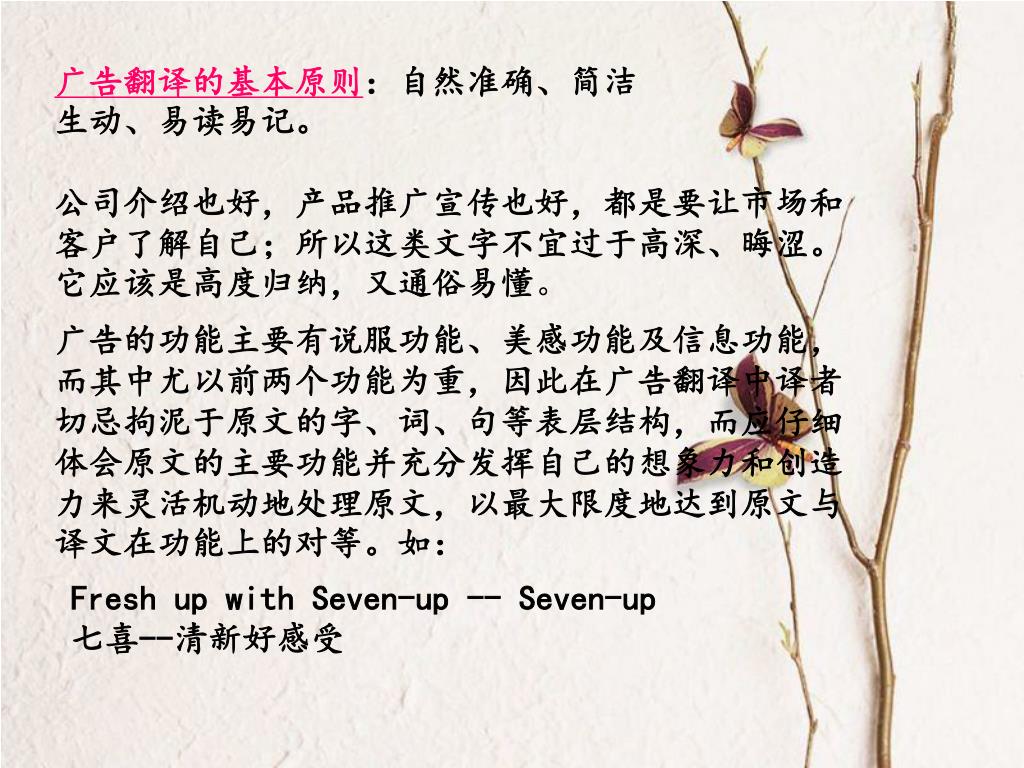 广告翻译的基本原则：自然准确、简洁
生动、易读易记。
公司介绍也好，产品推广宣传也好，都是要让市场和
客户了解自己；所以这类文字不宜过于高深、晦涩。
它应该是高度归纳，又通俗易懂。
广告的功能主要有说服功能、美感功能及信息功能，
而其中尤以前两个功能为重，因此在广告翻译中译者
切忌拘泥于原文的字、词、句等表层结构，而应仔细
体会原文的主要功能并充分发挥自己的想象力和创造
力来灵活机动地处理原文，以最大限度地达到原文与
译文在功能上的对等。如：
Fresh up with Seven-up -- Seven-up
七喜--清新好感受